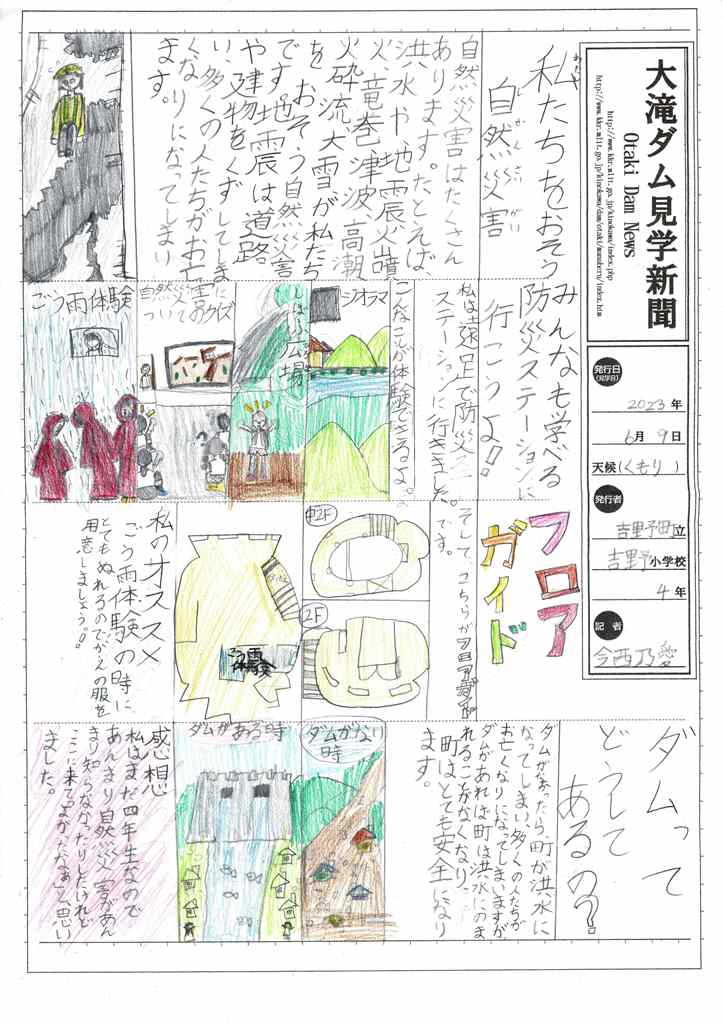 大滝ダム見学新聞
Otaki Dam News
http://www.kkr.mlit.go.jp/kinokawa/index.php
発行日
(見学日)
2023年
6月9日
天候(くもり)
発行者
吉野町立
吉野小学校
4年
記者
今西乃愛
私たちをおそう
自然災害
自然災害はたくさん
あります。たとえば
洪水や地震火山噴
火、竜巻、津波、高潮、
火砕流、大雪が私たち
を おそう自然災害
です。地震は道路
や建物をくずしてしま
い、多くの人たちがお亡
くなりになってしまい
ます。
みんなも学べる
防災ステーションに
行こうよ!!
私は遠足で防災
ステーションに行きました。
こんなことが体験できるよ。
ジオラマ
しばふ広場
自然災害に
ついてのクイズ
ごう雨体験
フロア
ガイド
そして、こちらがフロアガイド
です。
中2F
2F
ごう雨
体験
私のオススメ
ごう雨体験の時に
とてもぬれるのでかえの服を
用意しましょう!!
ダムって
どうして
あるの?
ダムがなかったら、町が洪水に
なってしまい、多くの人たちが
お亡くなりになってしまいますが、
ダムがあれば町は洪水にのま
れることがなくなり、
町はとても安全になり
ます。
ダムがない
時
ダムがある時
感想
私はまだ四年生なので
あんまり自然災害があん
まり知らなかったりしたけれど
ここに来てよかったなぁと思い
ました。